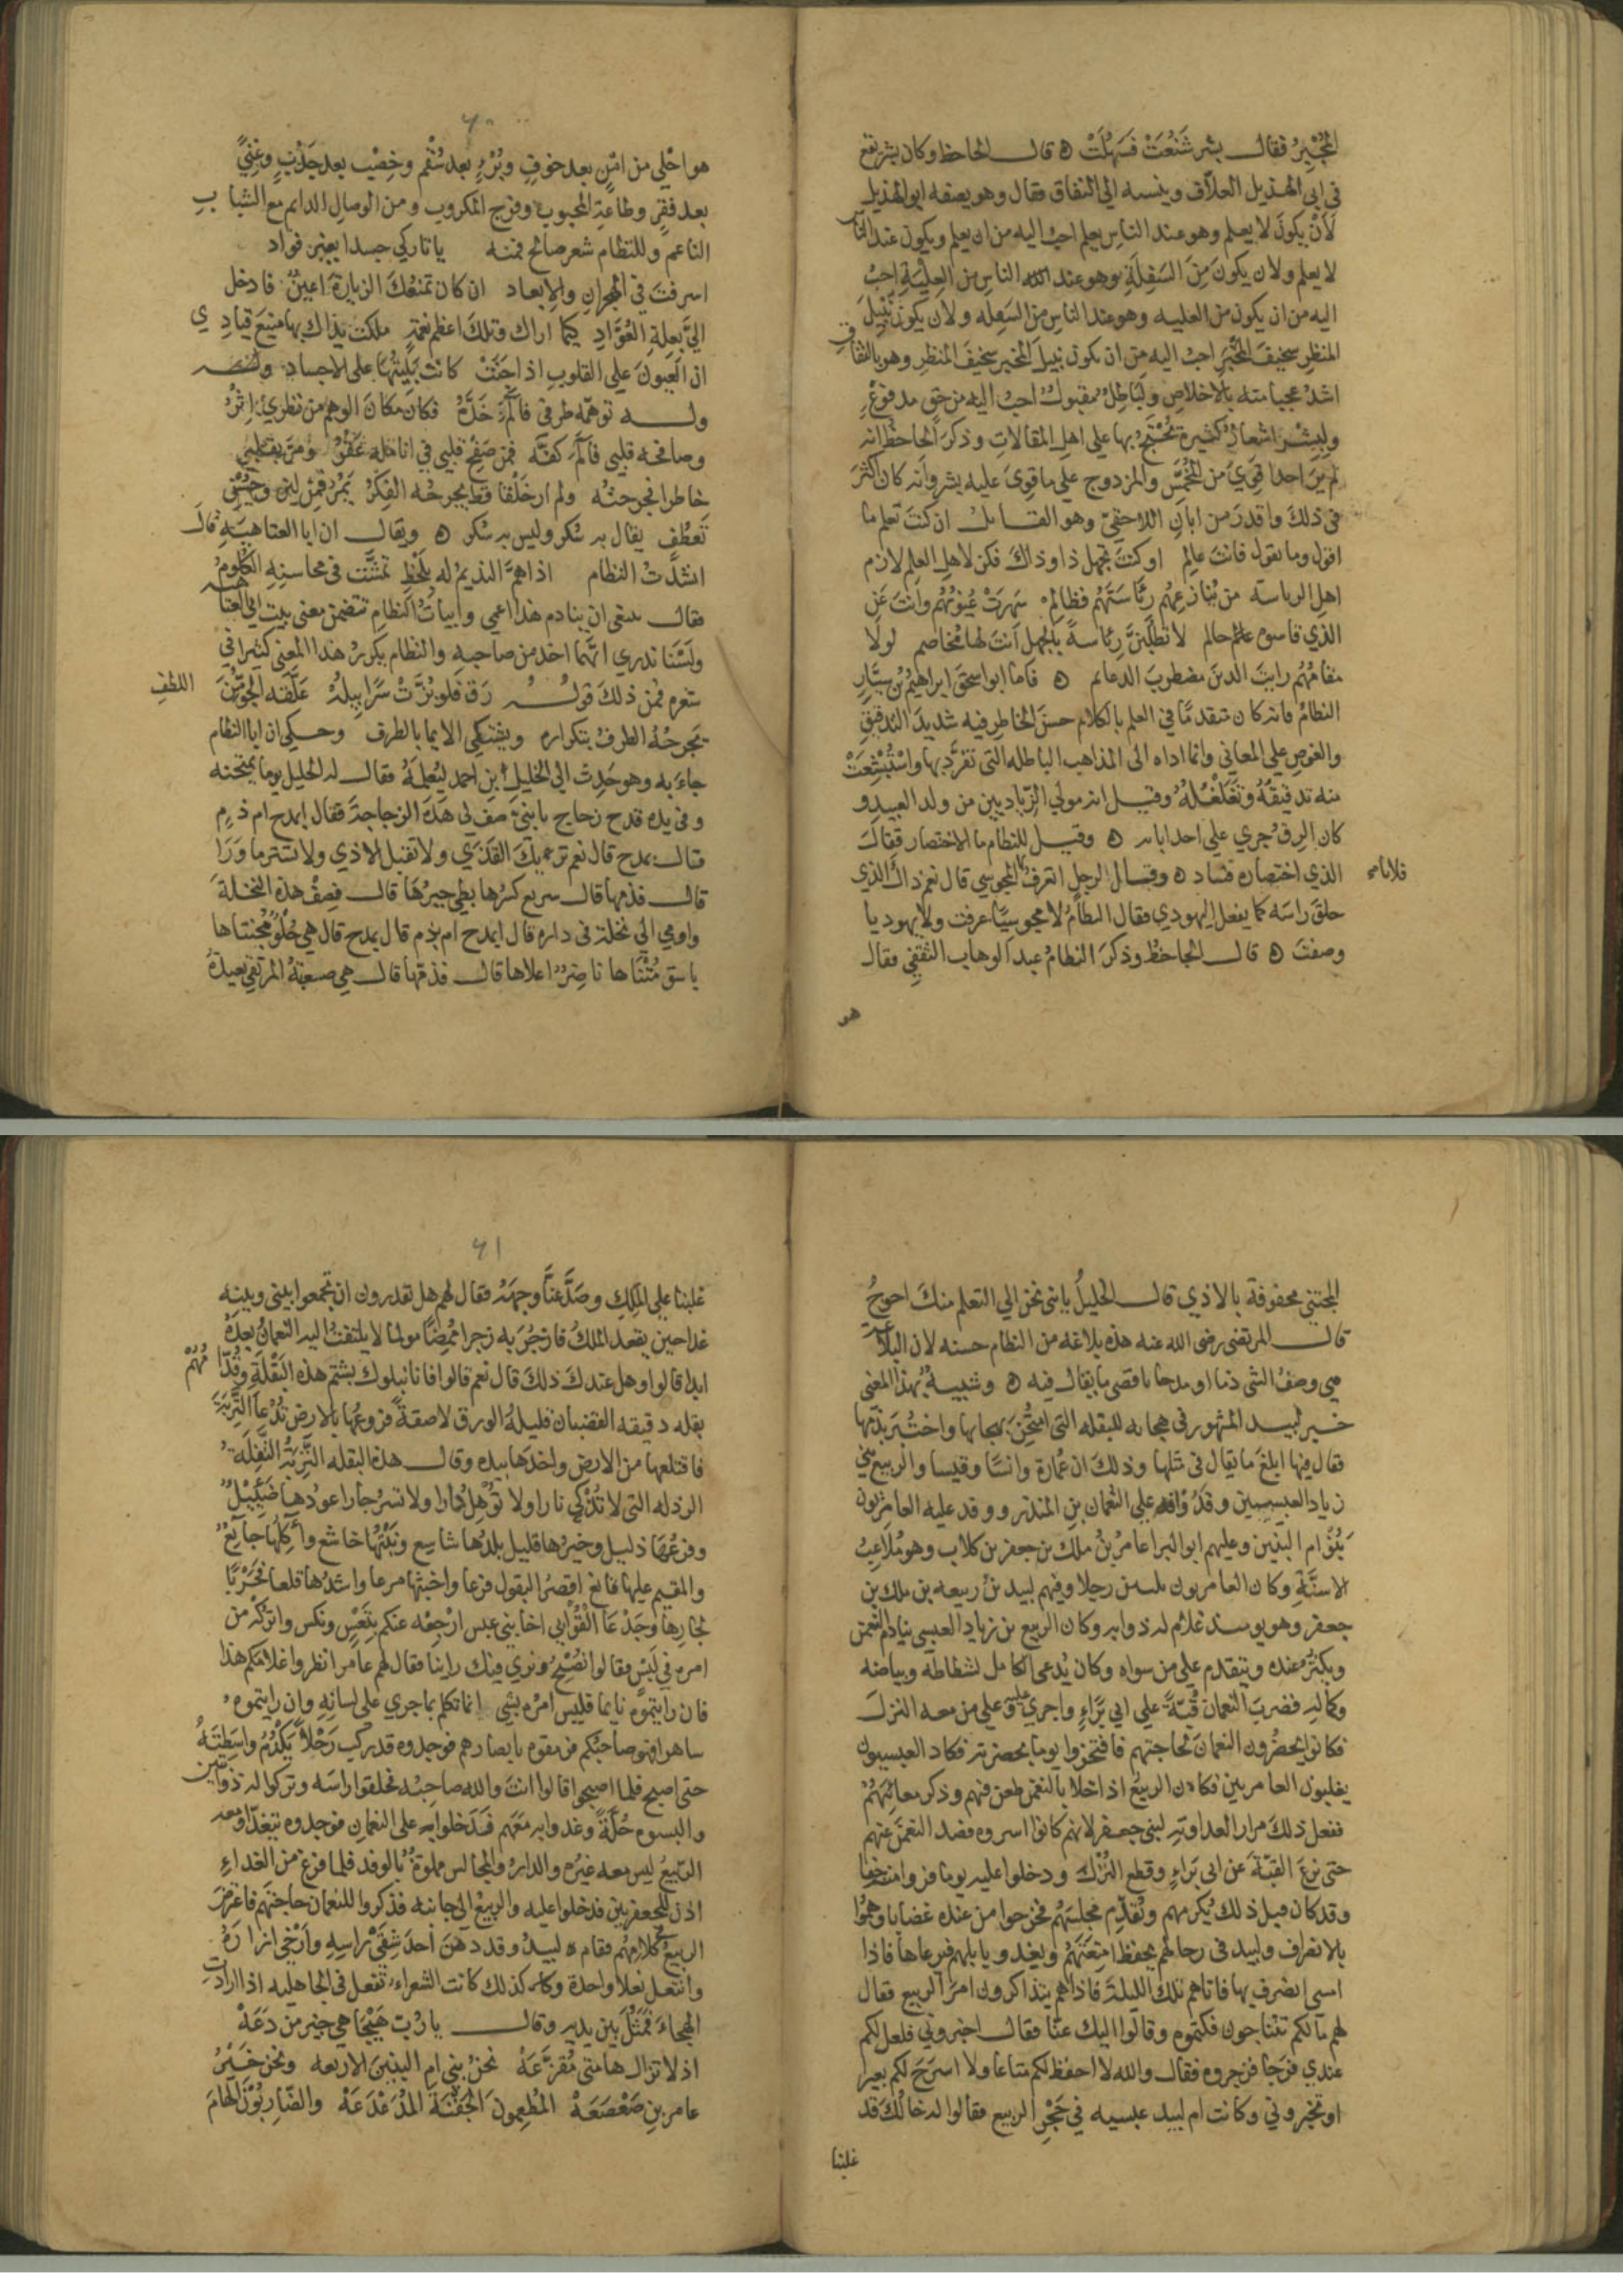 المُجْبِرُ فقال بشر شَنُعَتْ فَسَهُلَتْ ه قال الجاحظ وكان بشر يقع
في ابي الهذيل العلاّف وينسبه الي النفاق فقال وهو يصفه ابو الهذيل
لَأَنْ يكونَ لا يعلم وهو عند الناسِ يعلم احبّ اليه من ان يعلم ويكون عند الناس
لا يعلم ولأن يكونَ مِنَ السَفِلَةِ وهو عند الناسِ من العِلْيَةِ احبُّ
اليه من ان يكون من العليه وهو عند الناس من السَفِله ولأن يكونَ نَبِيلَ
المنظر سخيفَ المَخْبَرِ احبّ اليه مِن ان يكون نبيلَ المخبر سخيفَ المنظر وهو بالنفاقِ
اشدّ عجبا منه بالاخلاص ولَبَاطِلٌ مقبولٌ احبّ اليه من حقٍ مدفوعٍ
ولِبِشْرٍ اشعارٌ كثيرة يَحْتَجُّ بها علي اهلِ المقالاتِ وذكرَ الجاحظُ انه
لم يرَ احدا قَوِيَ من المُخَمَّسِ والمزدوج علي ما قَوِيَ عليه بشر وأنه كان اكثرَ
في ذلكَ واقدرَ من ابان اللاحقيّ وهو القائل ان كنتَ تعلم ما
اقول وما تقول فانتَ عالِم او كنتَ تجهل ذا وذاكَ فكن لاهلِ العلم لازم
اهل الرياسة من يُنازعهم رِئَاسَتَهُم فظالِمْ سَهِرَتْ عُيونُهُم وانتَ عَنِ
الذي قاسوه حالم لا تَطلُبَنَّ رِئاسةً بالجهل اَنتَ لها مُخاصم لولا
مقامُهُم رايتَ الدينَ مضطربَ الدعائم ه فاما ابو اسحق ابراهيمُ بن سيَّارٍ
النظامُ فانه كان متقدمًا في العلم بالكلام حسنَ الخاطرِ فيه شديدَ التدقيقِ
والغوصِ علي المعاني وانما اداه الى المذاهب الباطله التي تفرَّد بها واسْتُبْشِعَتْ
منه تدقيقهُ وتَغَلْغُلُهُ وقيل انه مولي الزّياديين من ولد العبيد و
كان الرِقُ جري علي احد ابائه ه وقيل للنظام ما الاختصار فقالَ
الذي اختصاره فساد ه وقال لرجل اتعرفُ فلانا المجوسي قال نعم ذاك الذي
حلقَ راسَه كما يفعل اليهودي فقال النظامُ لا مجوسيًا عرفت ولا يهوديا
وصفتَ ه قال الجاحظُ وذكرَ النظامُ عبد الوهاب الثقفي فقال
هو
٦٠
هو احْلي من امْنٍ بعد خوفٍ وبُرْءٍ بعد سُقْم وخِصْبٍ بعد جَدْبٍ وغِنًي
بعد فَقرٍ وطاعةِ المحبوب وفرج المكروب ومن الوصال الدائم مع الشبابِ
الناعم وللنظام شعر صالح فمنه يا تاركي جسدا بغير فؤاد
اسرفتَ في الهجرانِ والابعاد ان كان تمنعُكَ الزيارةَ اعينٌ فادخل
اليَّ بِعِلةِ العُوَّادِ كيما اراك وتلكَ اعظم نعمةٍ ملكت يداك بها منيعَ قيادِي
ان العيونَ علي القلوبِ اذا جَنَتْ كانت بَلِيَّتُهَا على الاجساد
وله توهّمه طرفي فآلَمَ خَدَّهُ فكان مكانَ الوهم من نظريْ اِثْرُ
وصافحه قلبي فآلَمَ كفَّه فمن صَفْحِ قلبي في انامله عَقْرُ ومَرَّ بقلبي
خاطرا فجرحتُه ولم ار خَلْقا قط يجرحُه الفِكرُ يَمُرّ فمِن لِينٍ وحُسْنِ
تَعطُّفٍ يقال به سُكر وليس به سُكر ه ويقال ان ابا العتاهيةِ قال
انشدتُ النظام اذا همَّ النديمُ له بِلَحْظٍ تمشَّت في محاسنهِ الكُلُومُ
فقال ينبغي ان ينادم هذا اعمي وابياتُ النظام تتضمن معنى بيت ابي العتاهيه
ولَسْنا ندري ايّهما اخذ من صاحبهِ والنظام يكررُ هذا المعنى كثيرا في
شعره فمن ذلكَ قوله رَقَّ فلو بُزَّتْ سَرَابِيلُهُ عَلَّقَه الجوُّ مِنَ اللطفِ
يَجرحُهُ الطرفُ بتكراره ويشتكي الايما بالطرف وحكي ان ابا النظام
جاءَ به وهو حَدِث الي الخليلِ ابن احمد ليُعلمَهُ فقال له الخليل يوما يمتحنه
وفي يده قدح زجاج يا بنيّ صِف لي هَذه الزجاجةَ فقال ابمدح ام ذمٍ
قال بمدح قال نعم تريك القَذَي ولا تقبل الاذي ولا تستر ما وَرَا
قال فذمّها قال سريع كسرُها بطي جبرُهَا قال فصِفْ هذه النخلةَ
واومي الي نخلة في داره قال ابمدح ام بذم قال بمدح قال هي حُلْوٌ مُجتناها
باسق مُنْتَهاها ناضِرٌ اعلاها قال فذمّها قال هي صعبةُ المرتقي بعيدةُ
المجتني محفوفة بالاذي قال الخليلُ يا بني نحن الي التعلم منكَ احوجُ
قال المرتضى رضى الله عنه هذه بلاغه من النظام حسنه لان البلاغه
هي وصفُ الشى ذما او مدحا باقصى ما يقال فيه ه وشبيه بهذا المعنى
خبر لبيد المشهور في هجايه للبقله التي امتُحِنَ بهجائها واختُبِرَ بذمّها
فقال فيها ابلغَ ما يقال في مثلها وذلكَ ان عُمارة وانسًا وقيسا والربيع بني
زياد العبسيين وفدُوا علي النعمان بن المنذر ووفد عليه العامريون
بَنُوْ ام البنين وعليهم ابو البرا عامرُ بنُ ملك بن جعفر بن كلاب وهو مُلاعِبُ
الاسنَّةِ وكان العامريون ثلثين رجلا وفيهم لبيد بنُ ربيعه بن ملك بن
جعفر وهو يومئذ غلام له ذوابه وكان الربيع بن زياد العبسي ينادم النعمن
ويكثُرُ عنده ويتقدم علي من سواه وكان يُدعى الكامل لشطاطه وبياضه
وكماله فضربَ النعمان قُبّةً علي ابي بَرَاءٍ واجري عليه وعلي من معه النزلَ
فكانوا يَحضُرون النعمانَ لحاجتهم فافتخروا يوما بحضرته فكاد العبسيون
يغلبون العامريين فكان الربيعُ اذا خلا بالنعمن طعن فيهم وذكر معائِبَهُمْ
ففعل ذلكَ مرارا لعداوته لبني جعفر لانهم كانوا اسروه فصد النعمنَ عنهم
حتى نزع القبةَ عن ابي بَراءٍ وقطع النُزْل ودخلوا عليه يوما فرأوا منه جفا
وقد كان قبل ذلك يُكرمهم ويُقَدِّم مجلسَهُم فخرجوا من عنده غضابا وهمُّوا
بالانصراف ولبيد في رحالهم يحفظ امتِعَتَهُم ويغدو بابلهم فيرعاها فاذا
امسي انصرف بها فاتاهم تلك الليلةَ فاذا هم يتذاكرون امرَ الربيع فقال
لهم ما لكم تتناجون فكتموه وقالوا اليك عنّا فقال اخبروني فلعل لكم
عندي فرَجا فزجروه فقال والله لا احفظ لكم متاعا ولا اسرّحَ لكم بعيرا
او تخبروني وكانت ام لبيد عبسيه في حَجْر الربيع فقالوا له خالُكَ قد
غلبنا
٦١
غلبنا علي المَلِكِ وصَدَّ عَنَّا وجهَهُ فقال لهم هل تقدرون ان تجمعوا بيني وبينه
غدا حين يقعد الملكُ فازجُرَ به زجرا مُمِضًّا مولما لا يلتفتُ اليه النعمانُ بعدَهُ
ابدا قالوا وهل عندك ذلكَ قال نعم قالوا فانا نبلوك بشتم هذه البَقْلَةِ وقُدّامُهُمْ
بقله دقيقه القضبان قليلةُ الورق لاصقةً فروعُها بالارضِ تُدْعَا التَّرِبَةَ
فاقتلعها من الارض واخذها بيده وقال هذه البقله التَّرِبَةُ التَّفِلَةُ
الرذله التي لا تُذْكي نارا ولا تُؤْهِلُ دارا ولا تسرُ جارا عودُها ضَئِيْلٌ
وفرعُهَا ذليل وخيرُها قليل بلدُها شاسِع ونَبْتُها خاشع وآكِلُها جائِعٌ
والمقيم عليها قانع اقصرُ البقول فرعا واخبثُها مرعا واشدُها قلعا فحَرْبًا
لجارِها وجَدْعَا الْقُوْا بي اخا بني عبس ارْجِعْه عنكم بِتَعَسٍ ونكس واتركْه من
امره في لَبسٍ فقالوا نُصْبِحُ ونري فيك راينا فقال لهم عامر انظروا غلامَكم هذا
فان رايتموه نايما فليس امرُه بشي انما تكلم بما جري علي لسانِهِ وان رايتموه
ساهرا فهو صاحبُكم فرمقوه بابصارهم فوجدوه قد ركب رَحْلاً يَكْدُمُ واسِطتَهُ
حتى اصبح فلما اصبحوا قالوا انتَ والله صاحبُه فحلقوا راسَه وتركوا له ذوابتين
والبسوه حُلَّةً وغدوا به مَعَهم فَدَخلوا به علي النعمانِ فوجدوه يتغدّا ومعه
الرَبيعُ ليس معه غيرُه والدارُ والمجالس مملوةٌ بالوفد فلما فرغ من الغداءِ
اذن للجعفريين فدخلوا عليه والربيعُ الي جانبه فذكروا للنعمان حاجتهم فاعترضَ
الربيعُ كلامِهُم فقام لبيدُ وقد دهنَ أحدَ شِقَيْ راسِهِ وأَرْخي ازارَهُ
وانتعل نعلا واحدة وكان كذلك كانت الشعراءُ تفعل في الجاهليه اذا ارادتِ
الهجاءَ فمَثُلَ بين يديه وقال يا رُبَ هَيْجًا هي خير من دَعَةْ
اذ لا تزال هامتي مُقزَّعَهْ نحنُ بني امِ البنينَ الاربعه ونحن خَيْرُ
عامر بنِ صَعْصَعَهْ المُطْعِمونَ الجَفْنَةَ المُدَعْدَعَهْ والضَّاربُوْنَ الهامَ